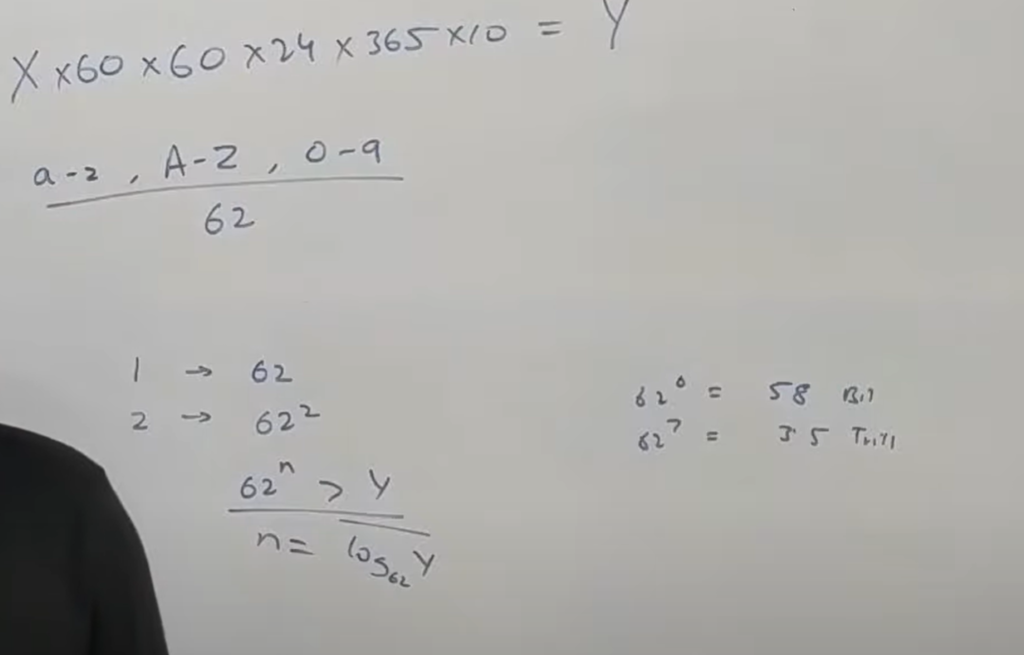 X x60 x 60 x 24 x 365 x 10 = Y
a-z , A-Z , 0-9
62
1 → 62
2 → 62²
62ⁿ > Y
n = log₆₂ Y
62⁶ = 58 Bil
62⁷ = 3.5 Trill